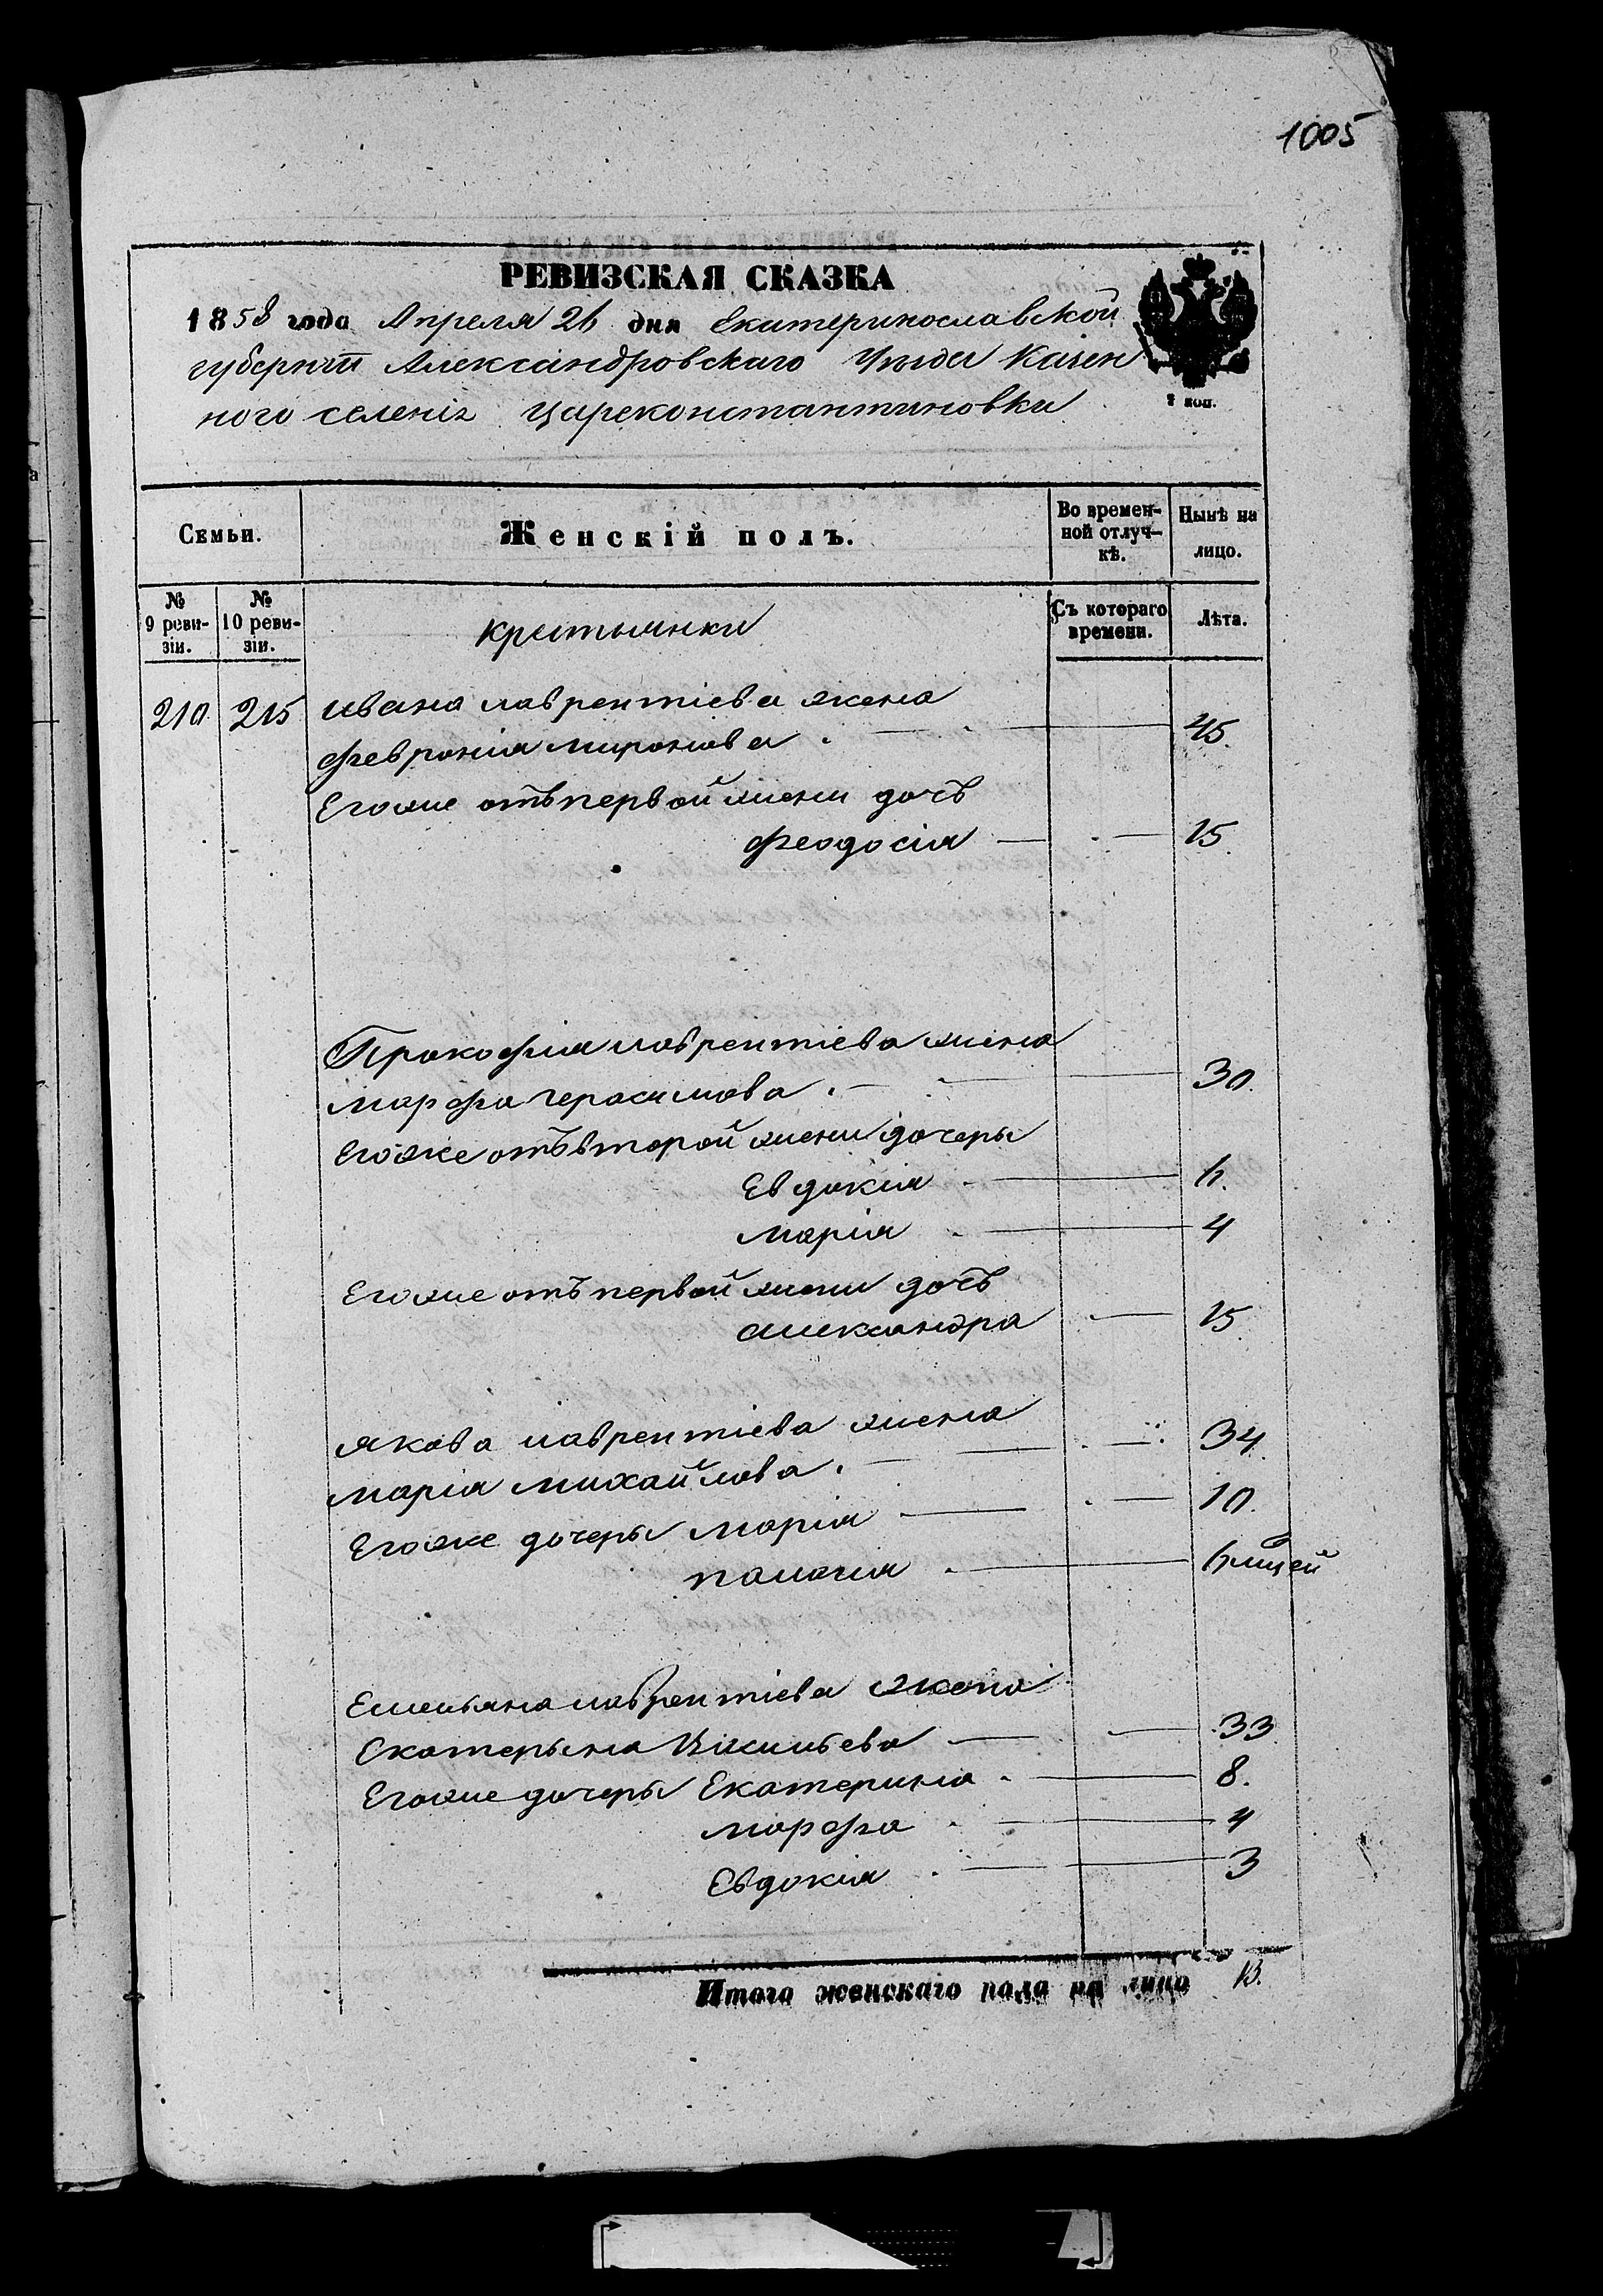 1005
РЕВИЗСКАЯ СКАЗКА
1858 года Апреля 26 дня Екатеринославской
губерніи Александровскаго Уѣзда Казен
ного селенія Цареконстантиновки
2 коп.
Семьи.
Женскій полъ.
Во времен-
ной отлуч-
кѣ.
Нынѣ на
лицо.
№
9 реви-
зіи.
№
10 реви-
зіи.
Съ котораго
времени.
Лѣта.
крестьянки
210. 215 Ивана лаврентіева жена
Февронія миронова 45.
Егоже отъ первой жени дочъ
Феодосія 15.
Прокофія лаврентіева жена
марфа герасимова 30.
Егоже отъ второй жени дочеры
Евдокія 6.
марія 4
Егоже отъ первой жени дочъ
александра 15
якова лаврентіева жена
марія михайлова 34.
Егоже дочеры марія 10.
палагія
Емельяна лаврентіева жена
Екатерына Васильева 33
Егоже дочеры Екатерина 8.
марфа 4
Евдокія 3
Итого женскаго пола на лицо 13.